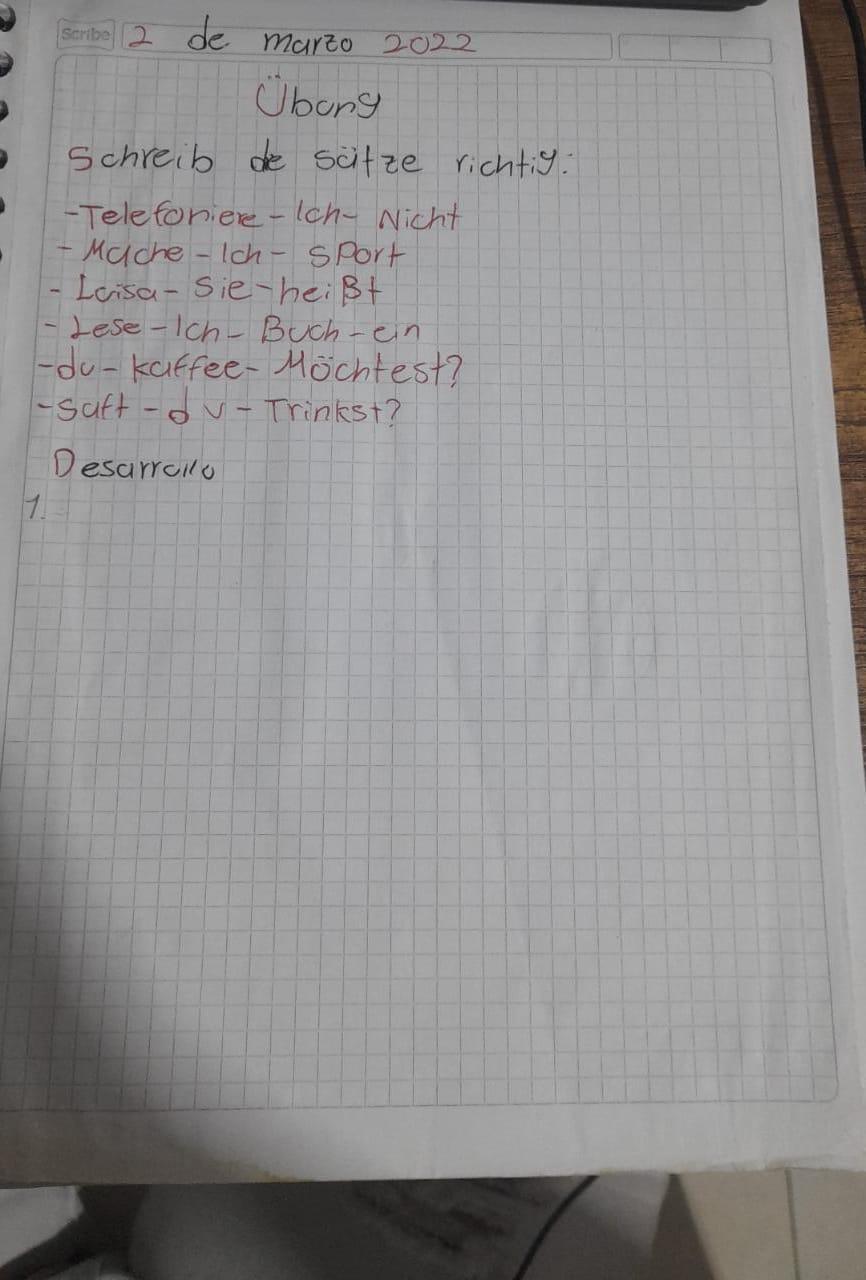 Scribe 2 de marzo 2022
Übung
Schreib de sätze richtig:
-Telefoniere-Ich-Nicht
-Mache-Ich-Sport
-Luisa-Sie-heißt
-Lese-Ich-Buch-ein
-du-kaffee-Möchtest?
-Saft-du-Trinkst?
Desarrollo
1.